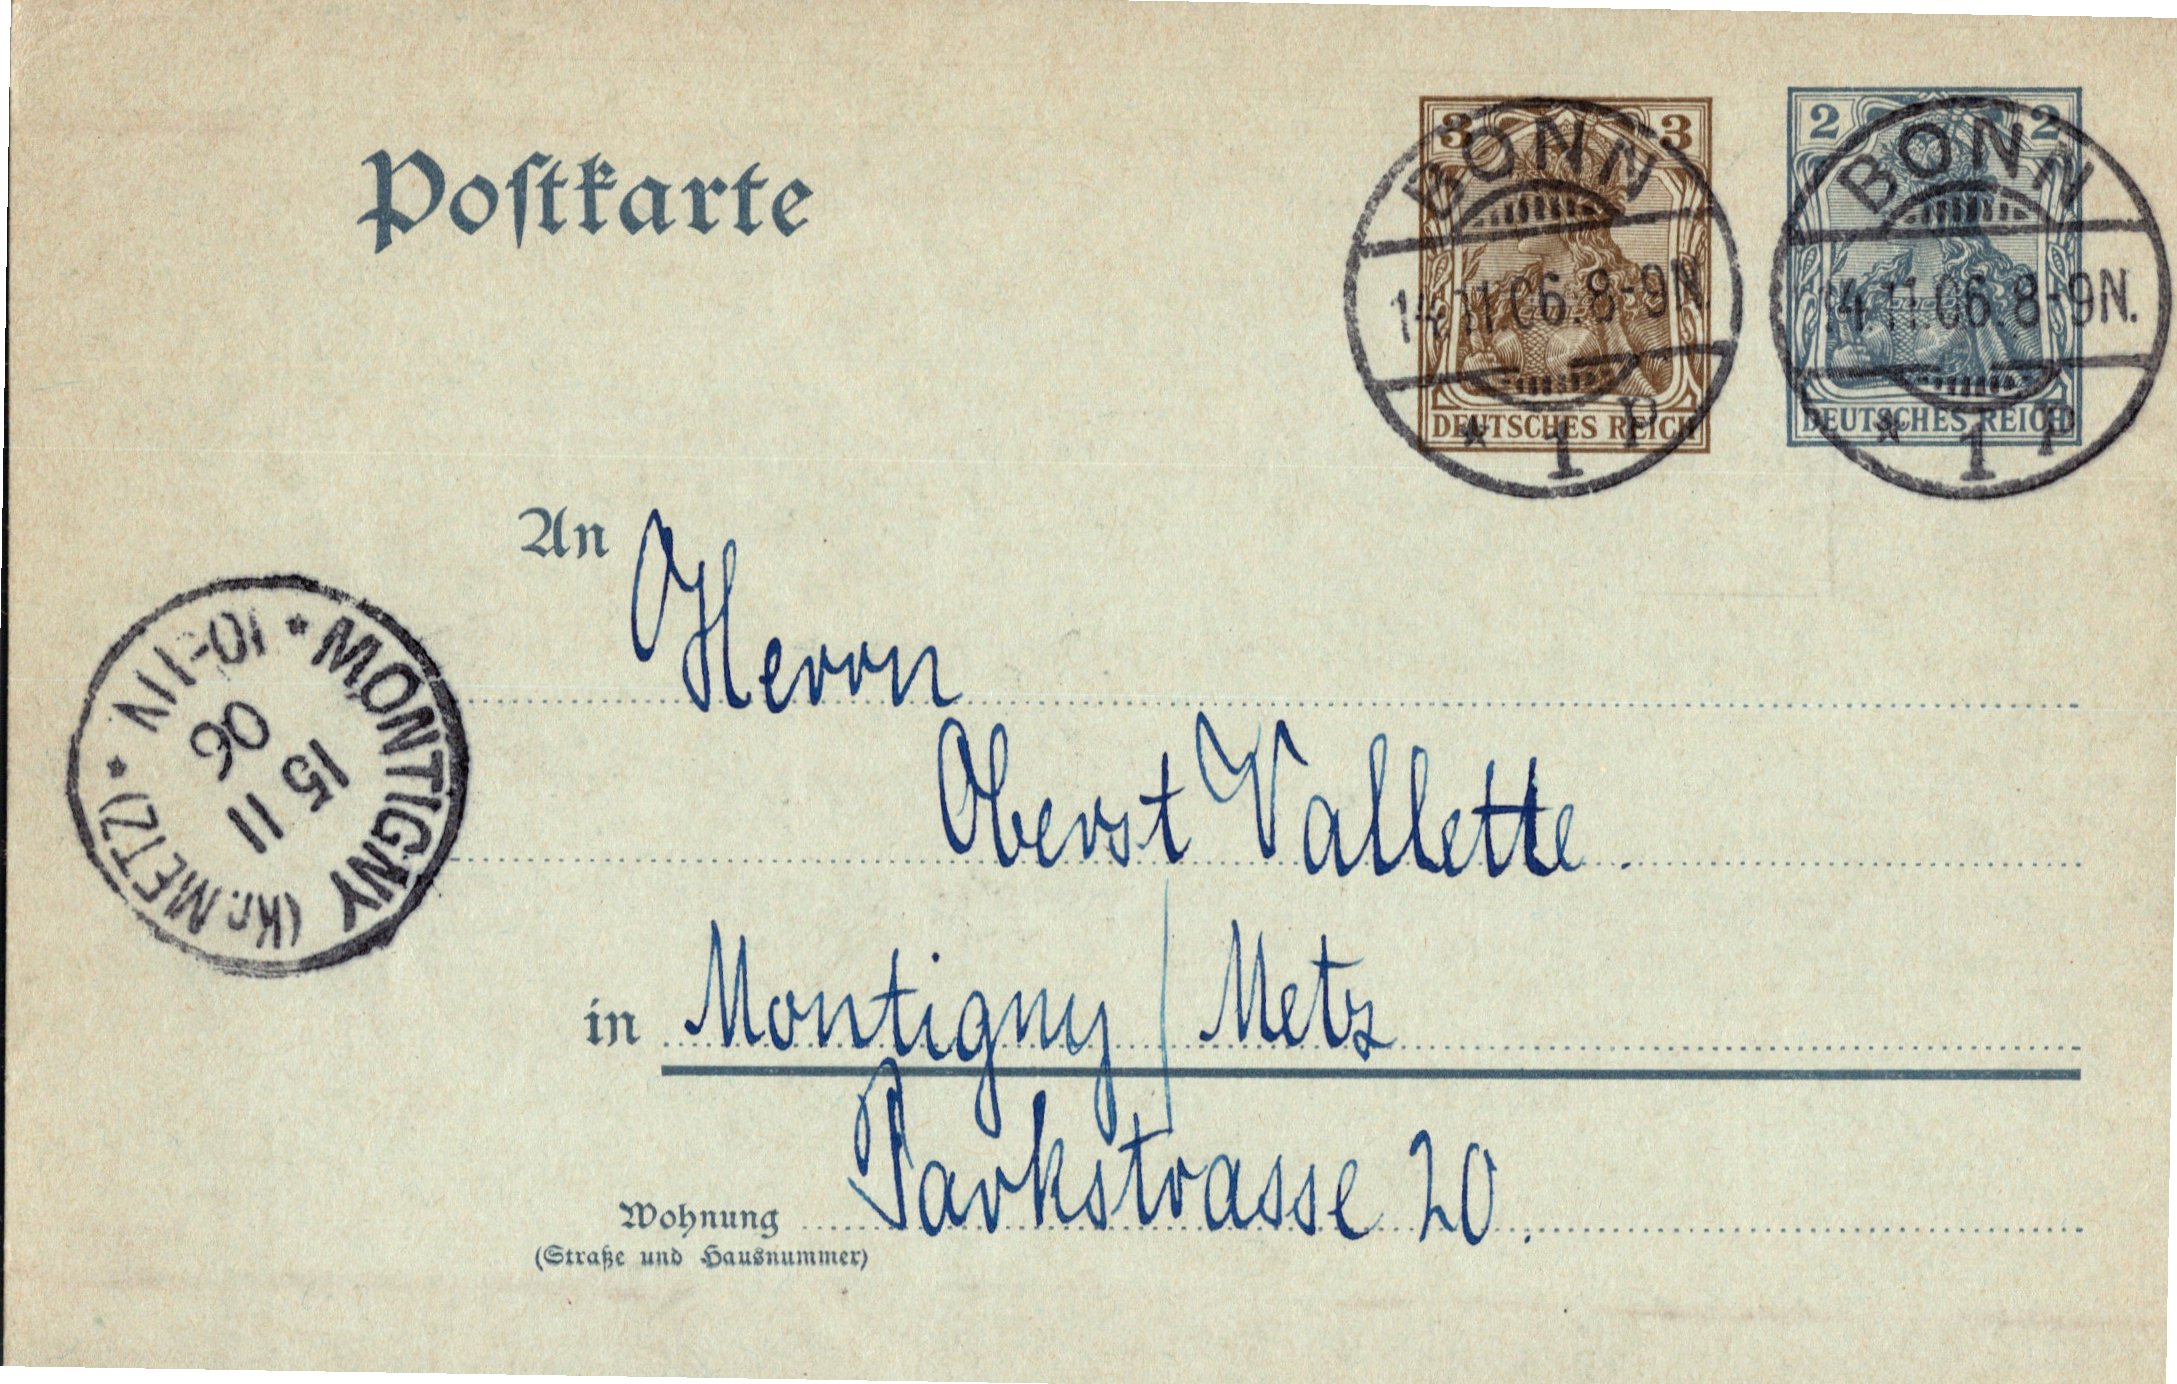 Postkarte
3 3
DEUTSCHES REICH
BONN
14.11.06.8-9N.
* 1 P
2 2
DEUTSCHES REICH
BONN
14.11.06.8-9N.
* 1 P
An Herrn
Oberst Vallette.
in Montigny / Metz
Parkstrasse 20.
Wohnung
(Straße und Hausnummer)
* MONTIGNY (Kr. METZ) *
15
11
06
10-11V